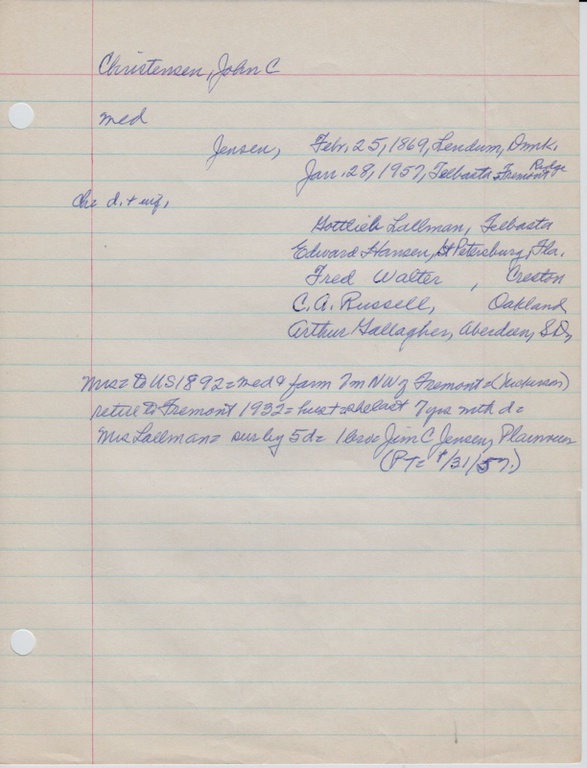 Christensen, John C
med
Jensen, Febr. 25, 1869, Lendum, Dmk.
Jan. 28, 1957, Telbasta, Fremont Ridge
Che d. +
Gottlieb Lallman, Telbasta
Edward Hansen, St Petersburg, Fla.
Fred Walter, Creston
C.A. Russell, Oakland
Arthur Gallagher, Aberdeen, S.D.
Mrs = to US 1892 = med & farm 7m NW of Fremont = (Nickerson)
retire to Fremont 1932 = last 7 yrs with d =
Mrs Lallman = sur by 5 d = 1 bro = Jim C Jensen, Plainview
(PT = 1/31/57.)